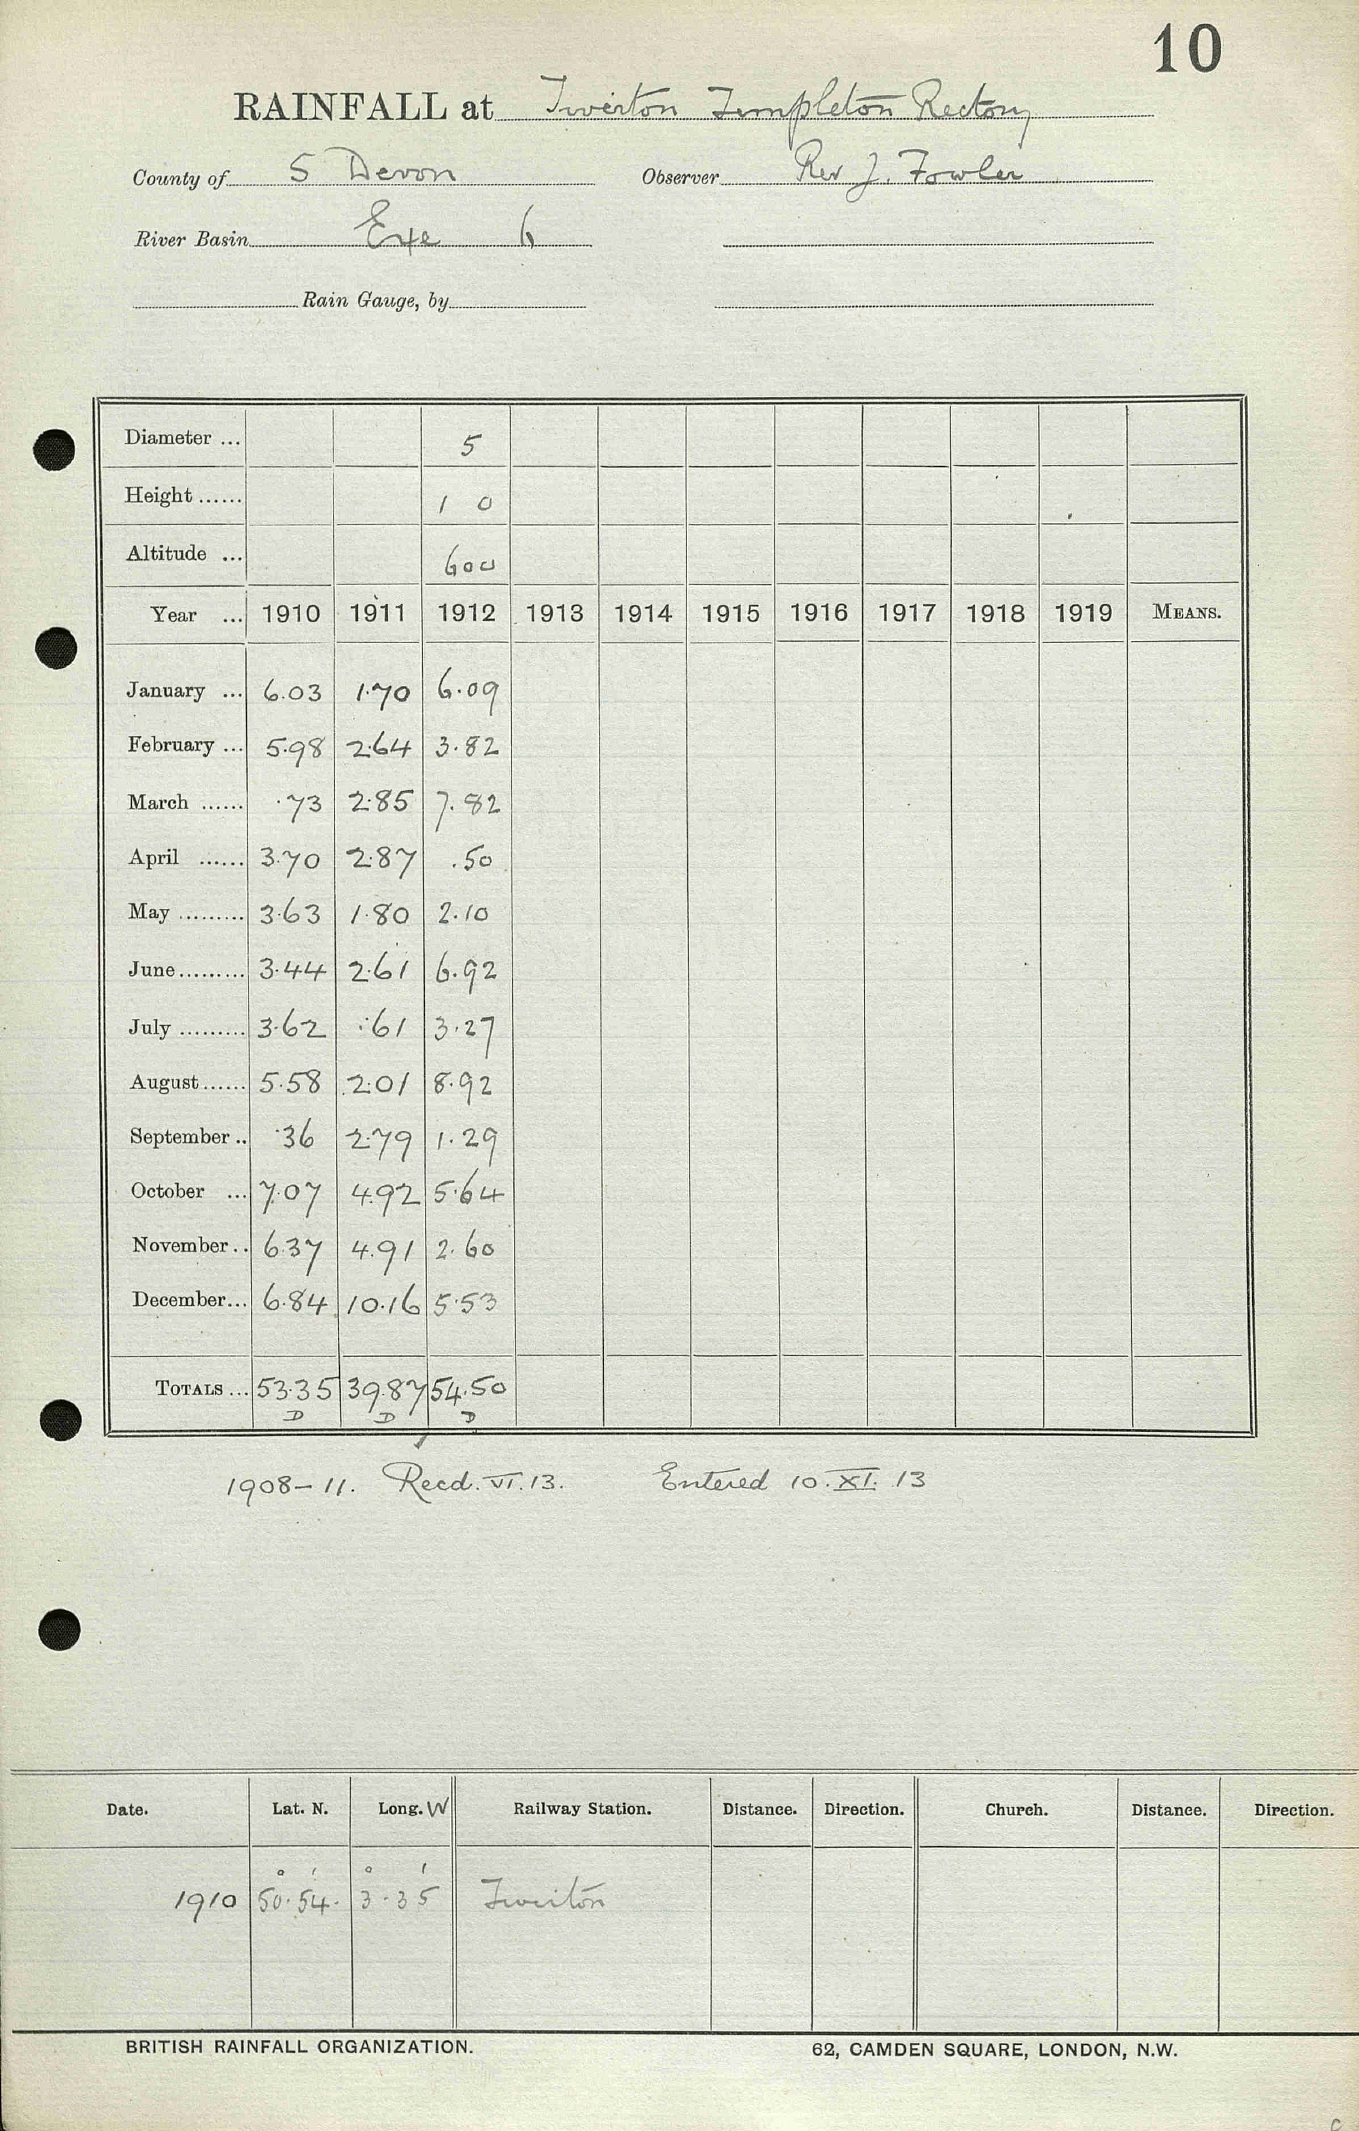 10
RAINFALL at Tiverton Templeton Rectory
County of S Devon Observer Rev J. Fowler
River Basin Exe 6
Rain Gauge, by
Diameter ... 5
Height ...... 1 0
Altitude ... 600
Year ... 1910 1911 1912 1913 1914 1915 1916 1917 1918 1919 MEANS.
January ... 6.03 1.70 6.09
February ... 5.98 2.64 3.82
March ...... .73 2.85 7.82
April ...... 3.70 2.87 .50
May ......... 3.63 1.80 2.10
June......... 3.44 2.61 6.92
July ......... 3.62 .61 3.27
August...... 5.58 2.01 8.92
September .. .36 2.79 1.29
October ... 7.07 4.92 5.64
November.. 6.37 4.91 2.60
December... 6.84 10.16 5.53
TOTALS ... 53.35 39.87 54.50
D D D
1908-11. Recd. VI.13. Entered 10.XI.13
Date. Lat. N. Long. W Railway Station. Distance. Direction. Church. Distance. Direction.
1910 50° 54' 3° 35' Tiverton
BRITISH RAINFALL ORGANIZATION. 62, CAMDEN SQUARE, LONDON, N.W.